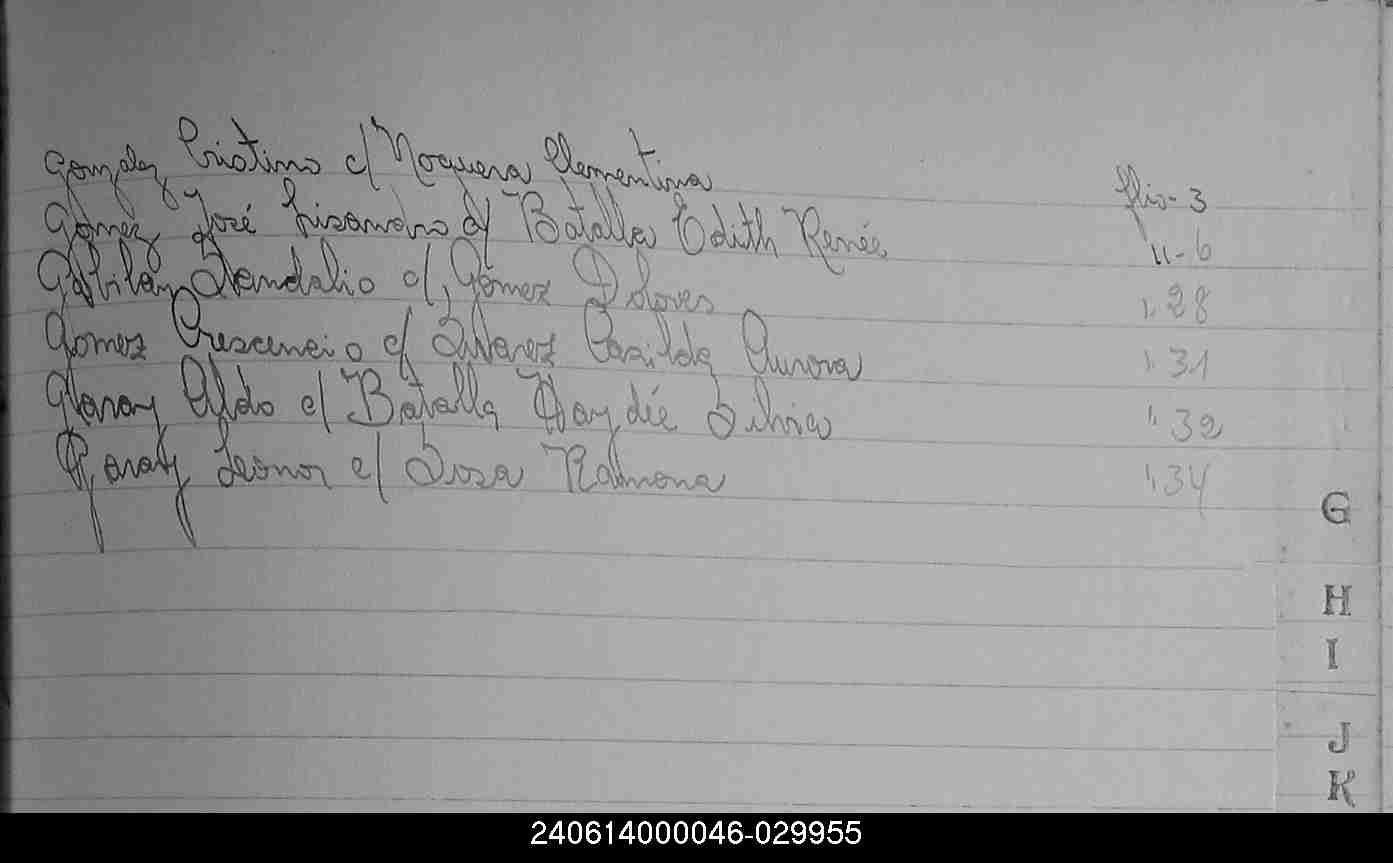 Gonzalez Cristino c/ Noguera Clementina flio-3
Gómez José Lisandro c/ Batalla Edith Renée "-6
Gabilan Wandalio c/ Gómez Dolores " 28
Gomez Crescencio c/ Alvarez Casilda Aurora " 31
Garay Aldo c/ Batalla Haydée Silvia " 32
Garay Leonor c/ Sosa Ramona " 34
G
H
I
J
K
240614000046-029955